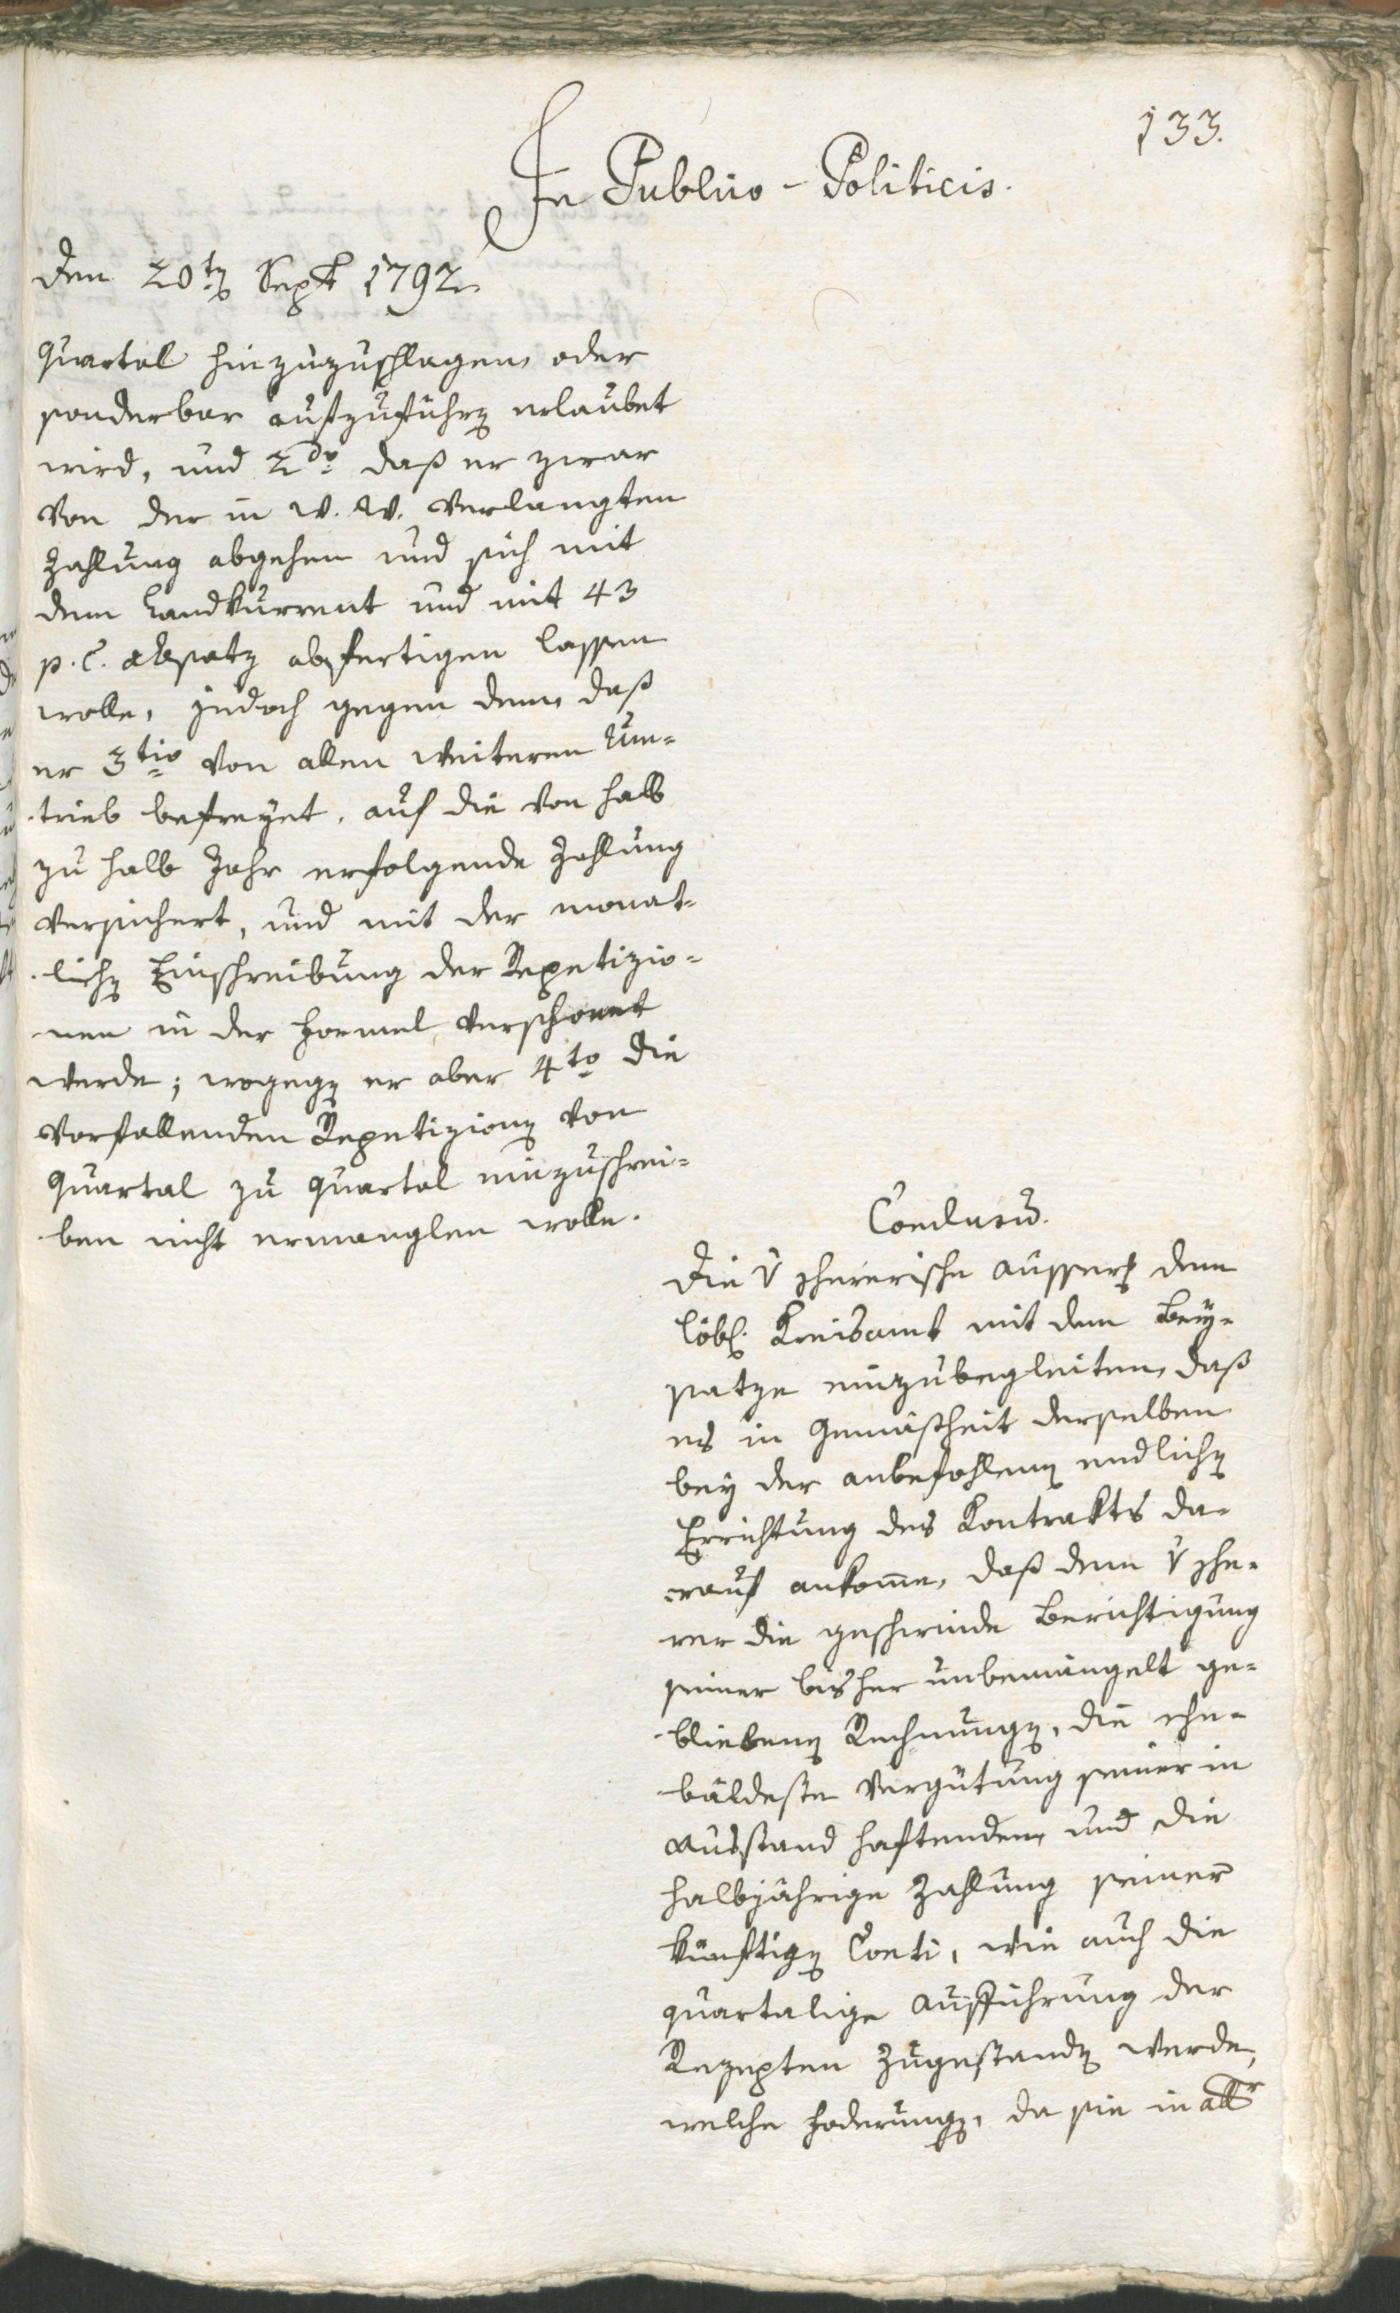 133.
In Publico-Politicis.
Den 20ten Sept 1792.
Quartal hinzuzuschlagen, oder
sonderbar aufzuführen erlaubet
wird, und 2do daß er zwar
von der in W. W. verlangten
Zahlung abgehen und sich mit
dem Landkurrent und mit 43
p. C. Absatz abfertigen lassen
wolle, jedoch gegen dem, daß
er 3tio von allen weiteren Um-
trieb befreyet, auf die von halb
zu halb Jahr erfolgende Zahlung
versichert, und mit der monat-
lichen Einschreibung der Repetizio-
nen in der Formel verschonet
werde; wogegen er aber 4to die
vorfallenden Repetizionen von
Quartal zu Quartal einzuschrei-
ben nicht ermanglen wolle.
Conclusum.
Die Äusserung dem
löbl. Kreisamt mit dem Bey-
satze einzubegleiten, daß
es in Gemäßheit derselben
bey der anbefohlenen endlichen
Errichtung des Kontrakts da-
rauf ankomme, daß dem
die geschwinde Berichtigung
seiner bisher unbemängelt ge-
bliebenen Rechnungen, die ehe-
bäldeste Vergütung seiner in
Ausstand haftenden, und die
halbjährige Zahlung seiner
künftigen Conti, wie auch die
quartalige Aufführung der
Rezepten zugestanden werde,
welche Foderungen, da sie in